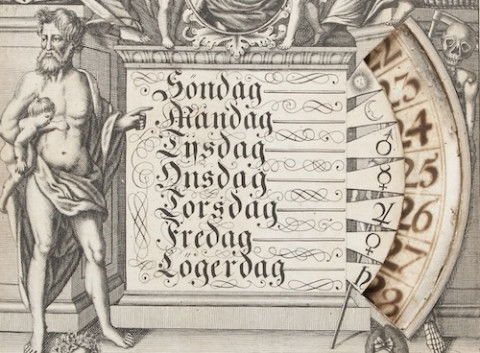 Söndag ☉
Måndag ☾ 23
Tysdag ♂ 24
Onsdag ☿ 25
Torsdag ♃ 26
Fredag ♀ 27
Lögerdag ♄ 28